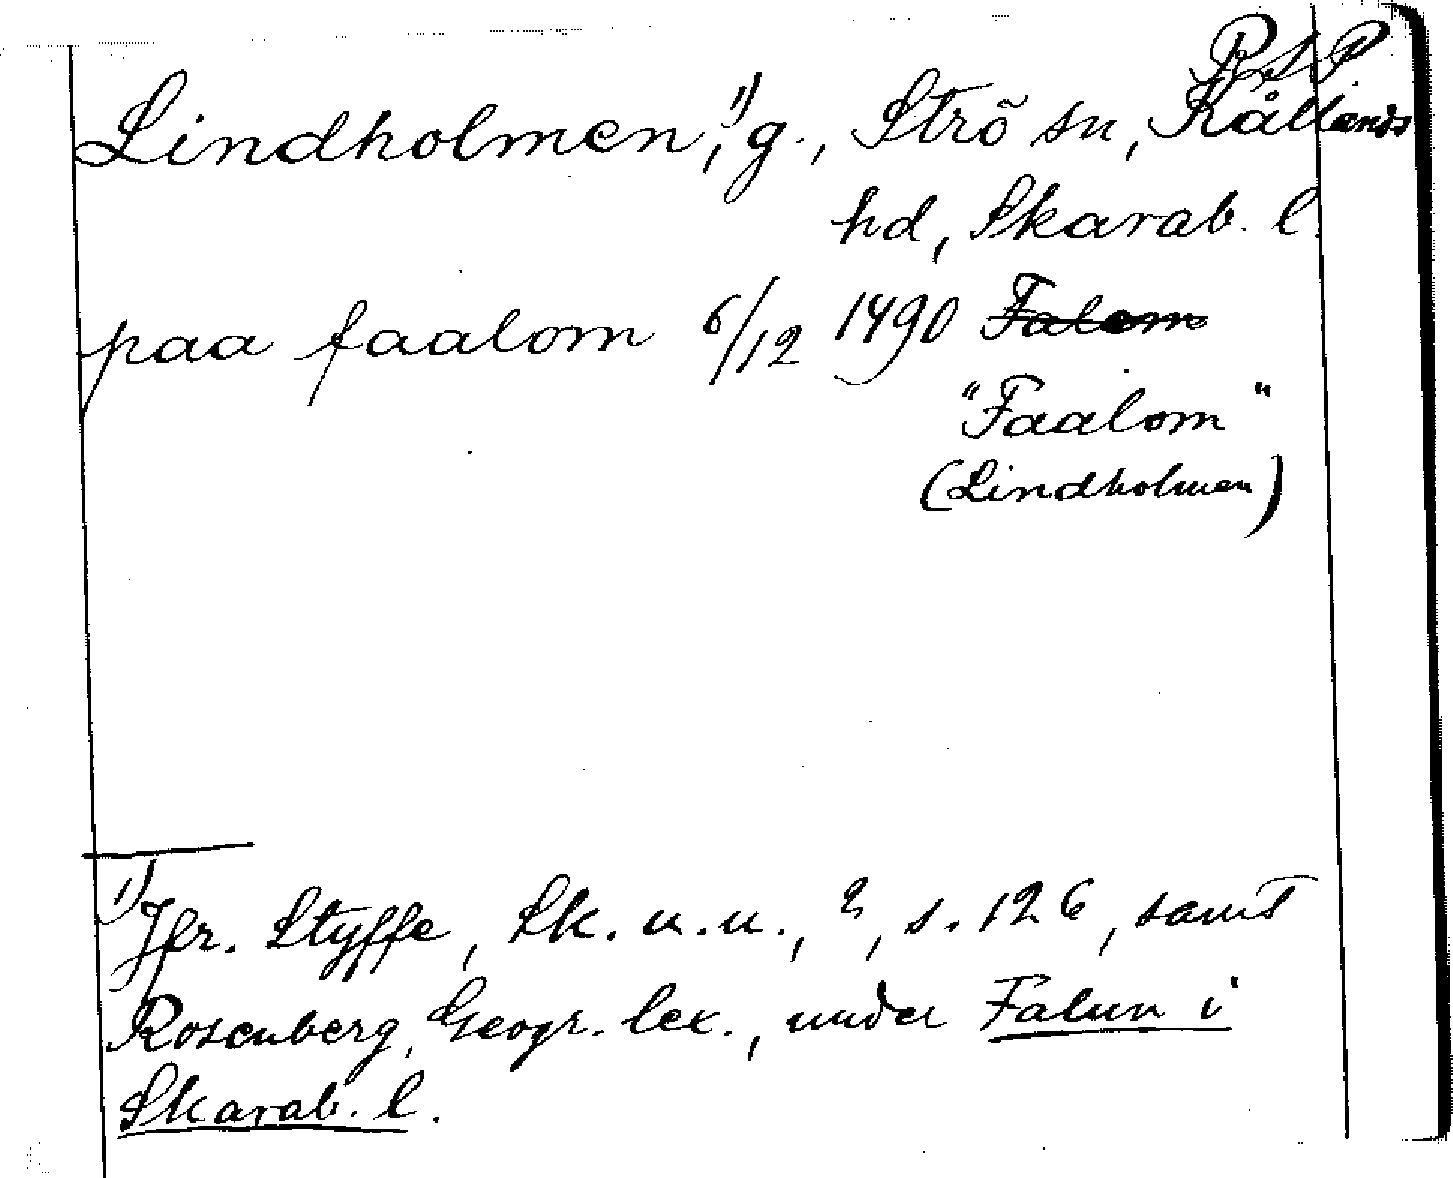 R.A.P.
Lindholmen,¹⁾ g., Strö sn, Kållands
hd, Skarab. l.
paa faalom 6/12 1490 Falom
"Faalom"
(Lindholmen)
¹⁾ Jfr. Styffe, Sk. u. u., 2, s. 126, samt
Rosenberg, Geogr. lex., under Falun i
Skarab. l.